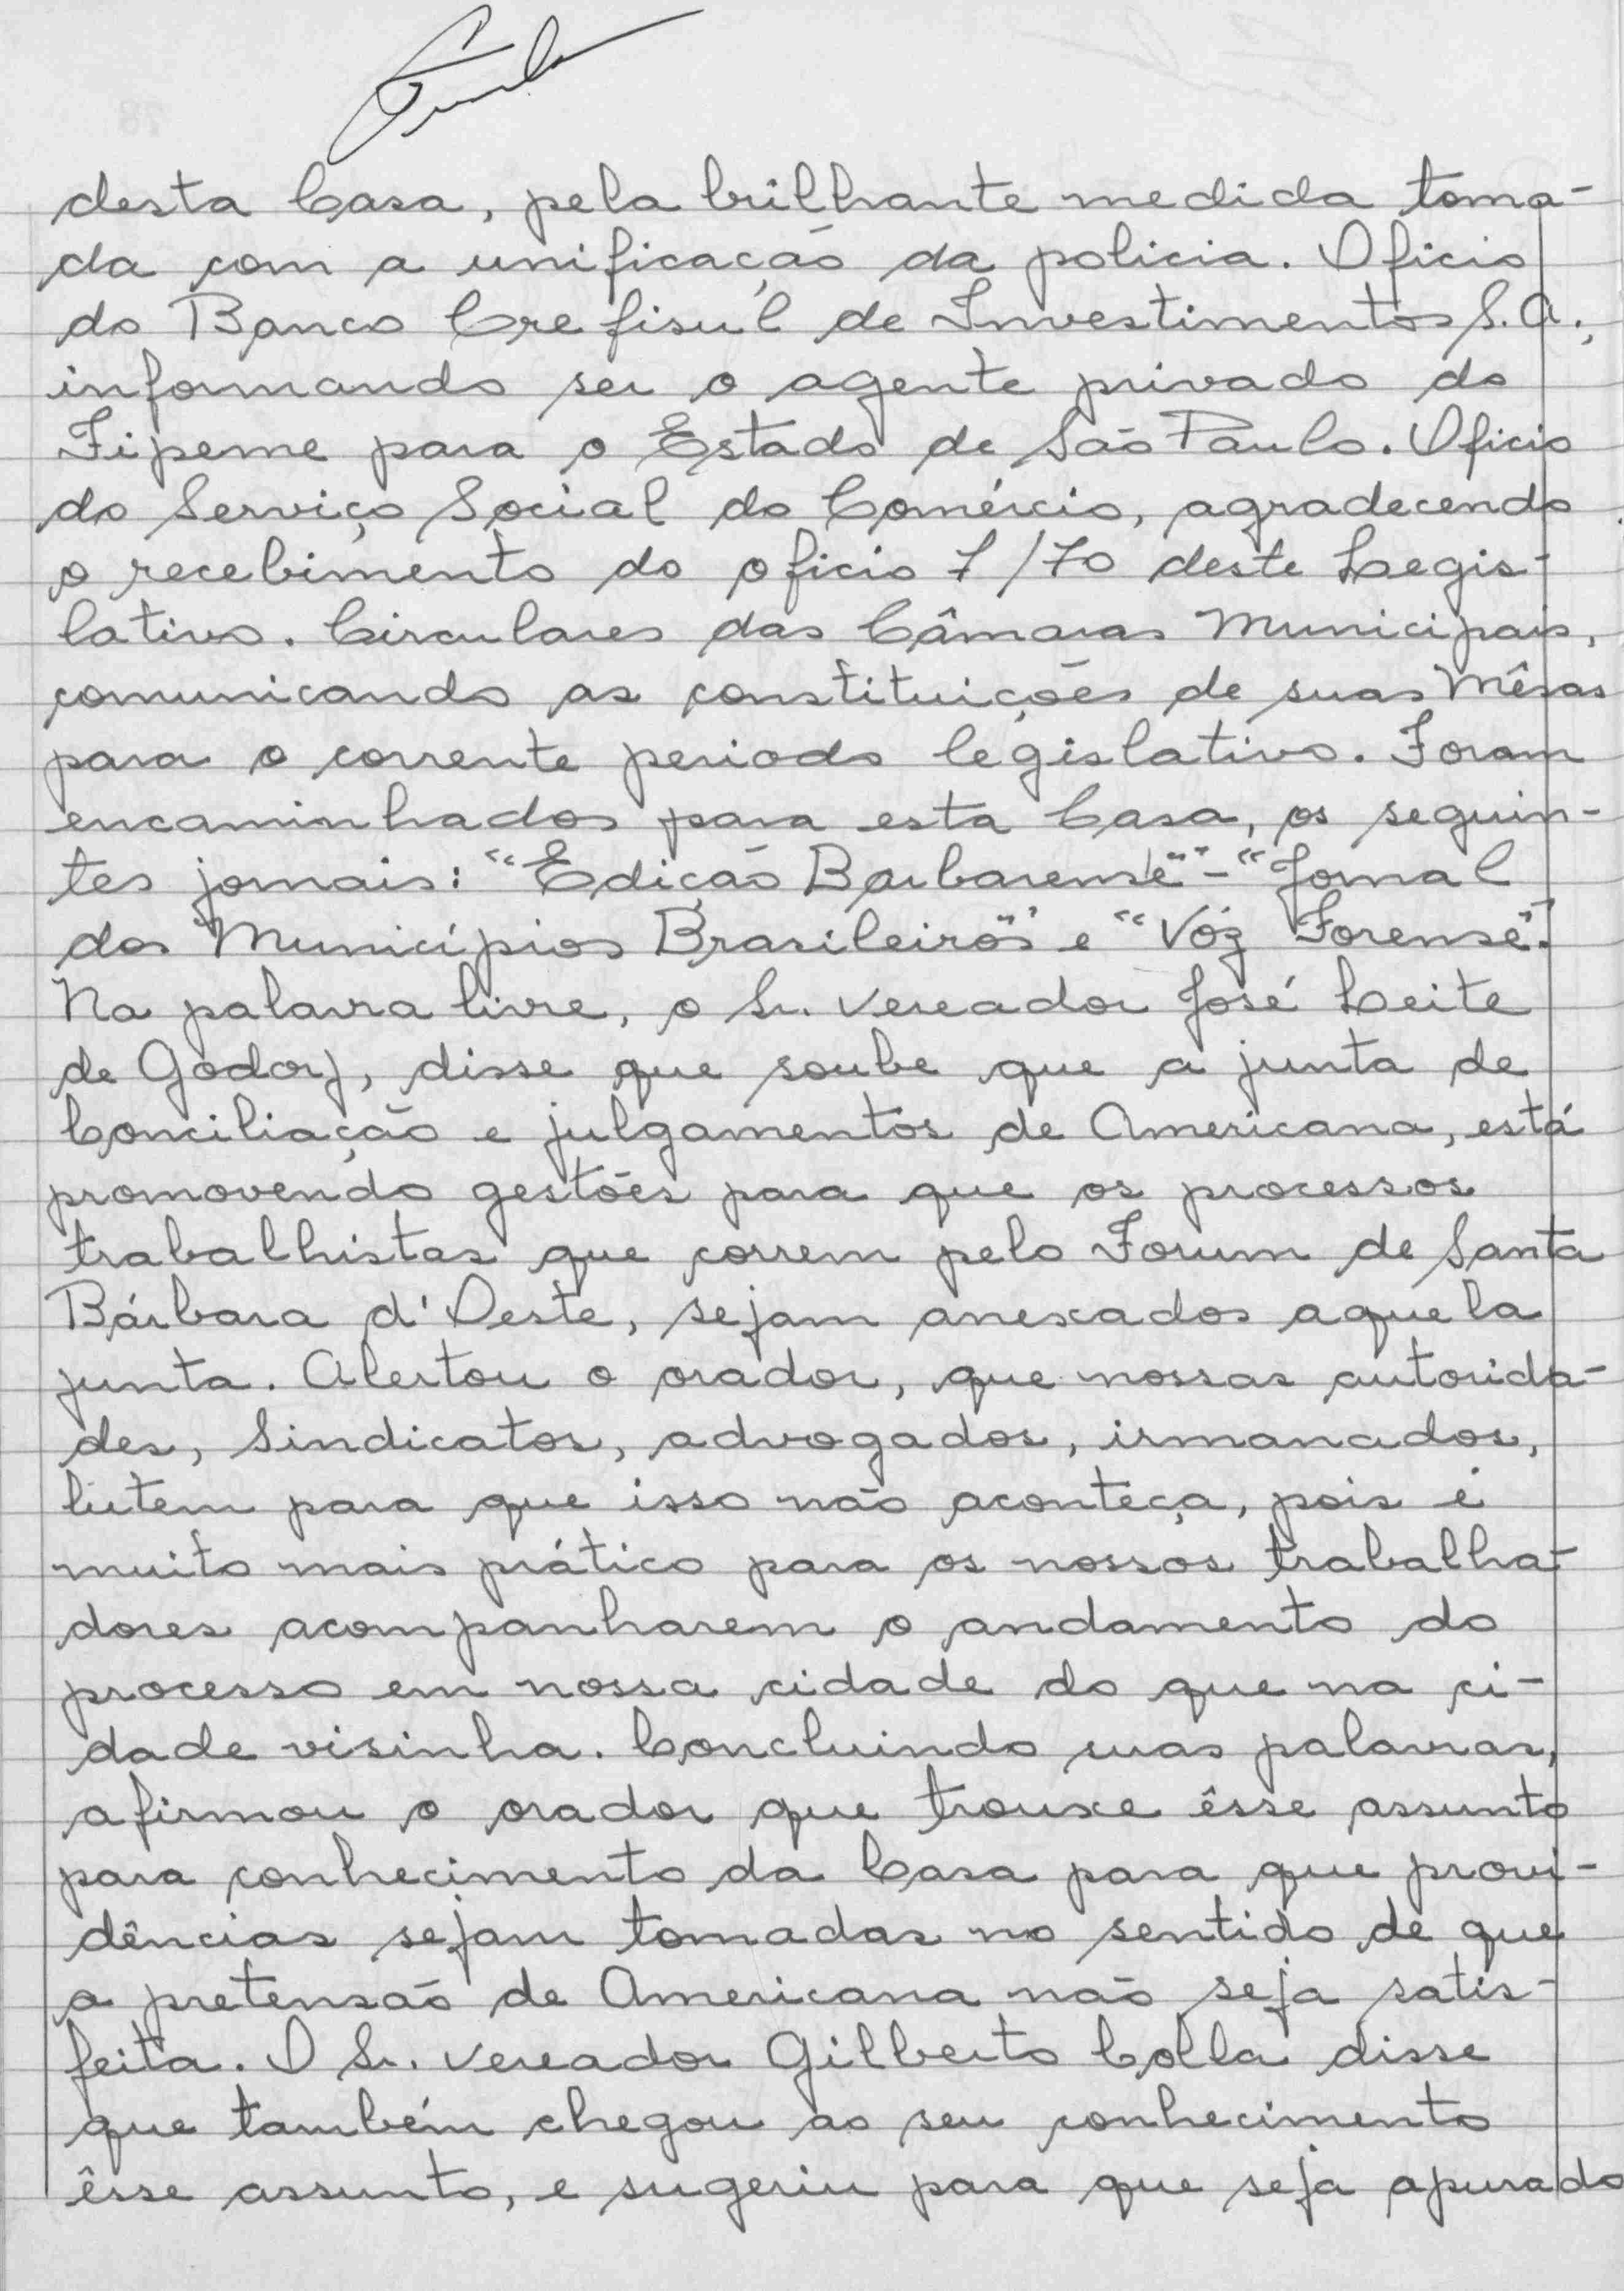 desta Casa, pela brilhante medida toma-
da com a unificação da policia. Oficio
do Banco Crefisul de Investimentos S.A.,
informando ser o agente privado do
Fipeme para o Estado de São Paulo. Oficio
do Serviço Social do Comércio, agradecendo
o recebimento do oficio 7/70 deste Legis-
lativo. Circulares das Câmaras Municipais,
comunicando as constituições de suas Mêsas
para o corrente periodo legislativo. Foram
encaminhados para esta Casa, os seguin-
tes jornais: "Edição Barbarense" - "Jornal
dos Municípios Brasileiros" e "Vóz Forense".
Na palavra livre, o Sr. Vereador José Leite
de Godoy, disse que soube que a junta de
Conciliação e julgamentos de Americana, está
promovendo gestões para que os processos
trabalhistas que correm pelo Forum de Santa
Bárbara d'Oeste, sejam anexados aquela
junta. Alertou o orador, que nossas autorida-
des, Sindicatos, advogados, irmanados,
lutem para que isso não aconteça, pois é
muito mais prático para os nossos trabalha-
dores acompanharem o andamento do
processo em nossa cidade do que na ci-
dade visinha. Concluindo suas palavras,
afirmou o orador que trouxe êsse assunto
para conhecimento da Casa para que provi-
dências sejam tomadas no sentido de que
a pretensão de Americana não seja satis-
feita. O Sr. Vereador Gilberto Colla disse
que também chegou ao seu conhecimento
êsse assunto, e sugeriu para que seja apurado